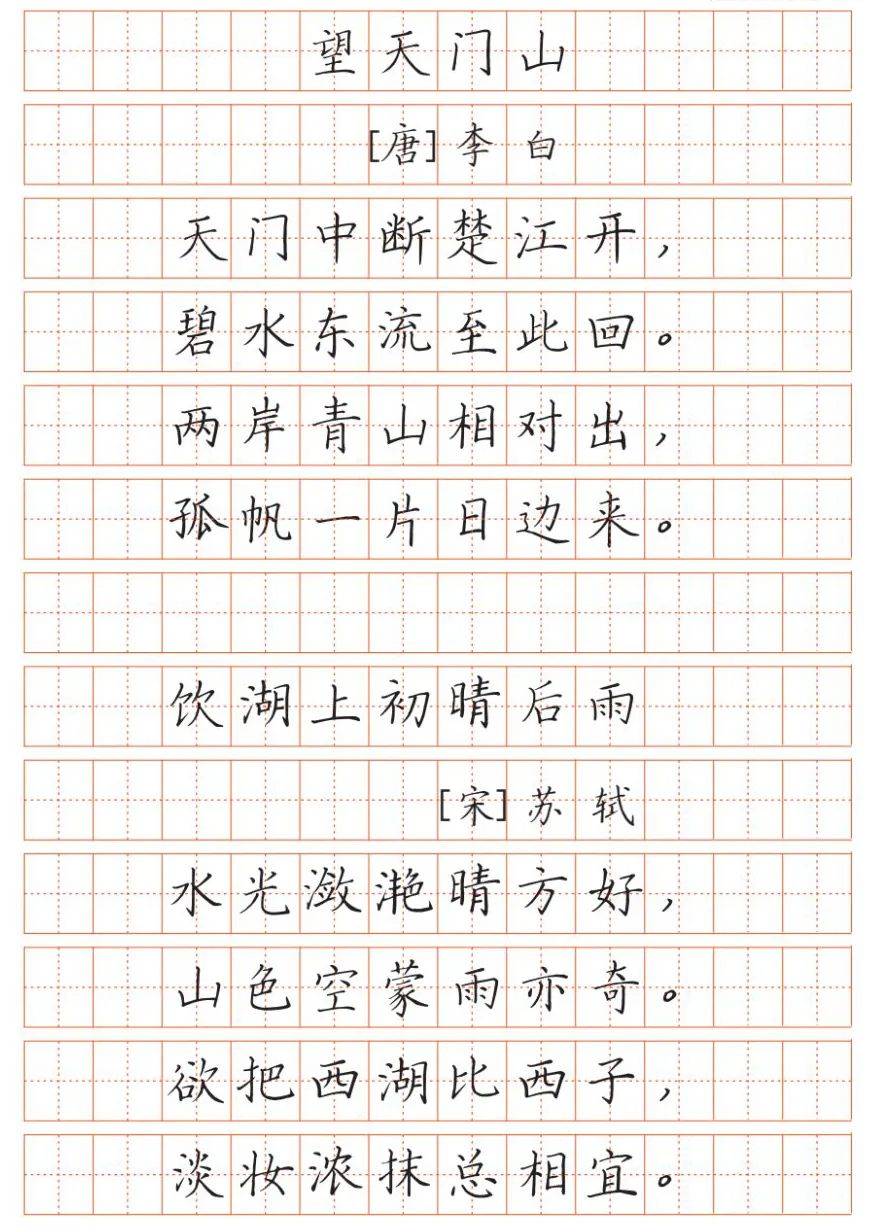 望天门山
[唐]李白
天门中断楚江开，
碧水东流至此回。
两岸青山相对出，
孤帆一片日边来。
饮湖上初晴后雨
[宋]苏轼
水光潋滟晴方好，
山色空蒙雨亦奇。
欲把西湖比西子，
淡妆浓抹总相宜。